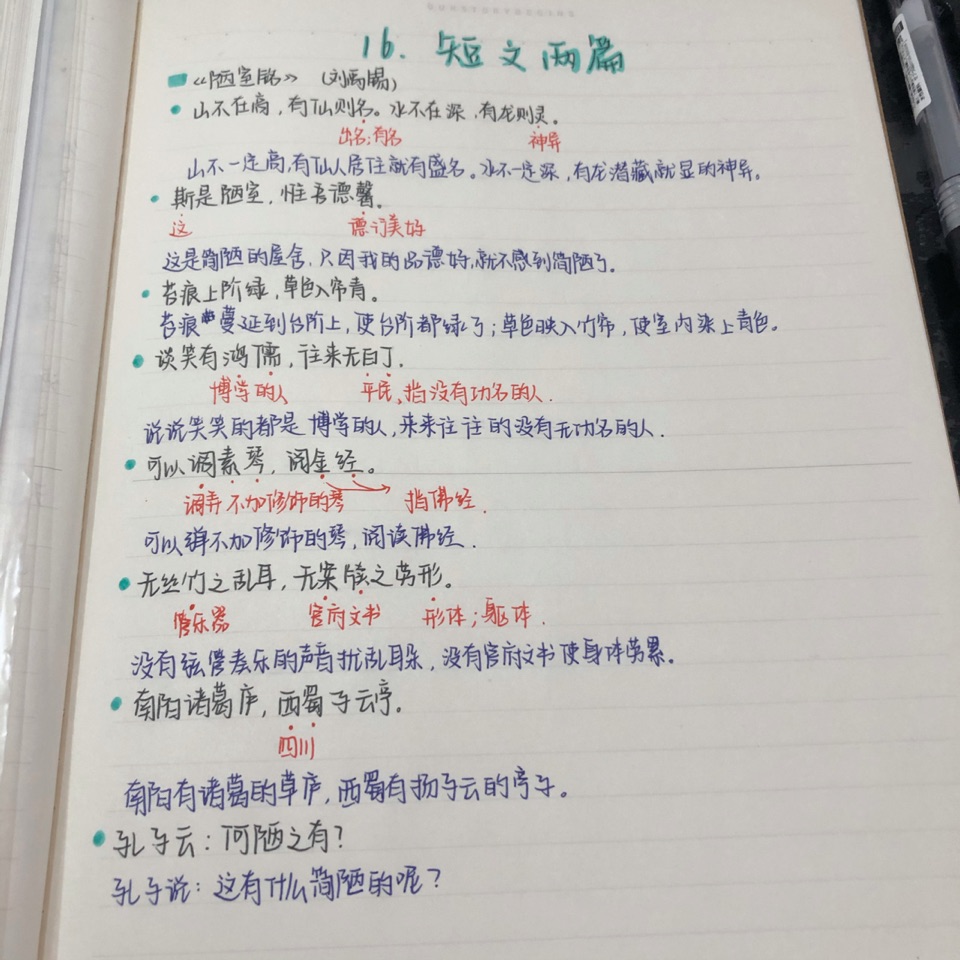 16. 短文两篇
《陋室铭》 (刘禹锡)
山不在高,有仙则名。水不在深,有龙则灵。
出名;有名 神异
山不一定高,有仙人居住就有盛名。水不一定深,有龙潜藏就显的神异。
斯是陋室,惟吾德馨。
这 德行美好
这是简陋的屋舍,只因我的品德好,就不感到简陋了。
苔痕上阶绿,草色入帘青。
苔痕蔓延到台阶上,使台阶都绿了;草色映入竹帘,使室内染上青色。
谈笑有鸿儒,往来无白丁.
博学的人 平民,指没有功名的人.
说说笑笑的都是博学的人,来来往往的没有无功名的人.
可以调素琴,阅金经。
调弄 不加修饰的琴 指佛经.
可以弹不加修饰的琴,阅读佛经.
无丝竹之乱耳,无案牍之劳形。
管乐器 官府文书 形体;躯体.
没有弦管奏乐的声音扰乱耳朵,没有官府文书使身体劳累。
南阳诸葛庐,西蜀子云亭。
四川
南阳有诸葛的草庐,西蜀有扬子云的亭子。
孔子云:何陋之有?
孔子说:这有什么简陋的呢?